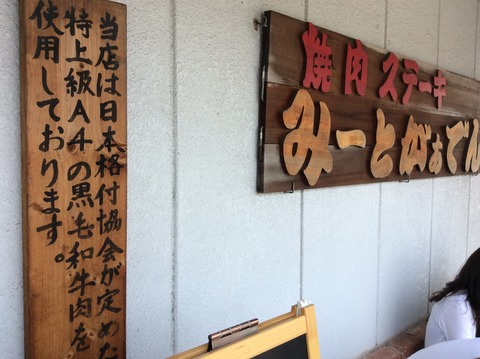 当店は日本格付協会が定めた
特上・級A4の黒毛和牛肉を
使用しております。
焼肉ステーキ
みーとがぁでん